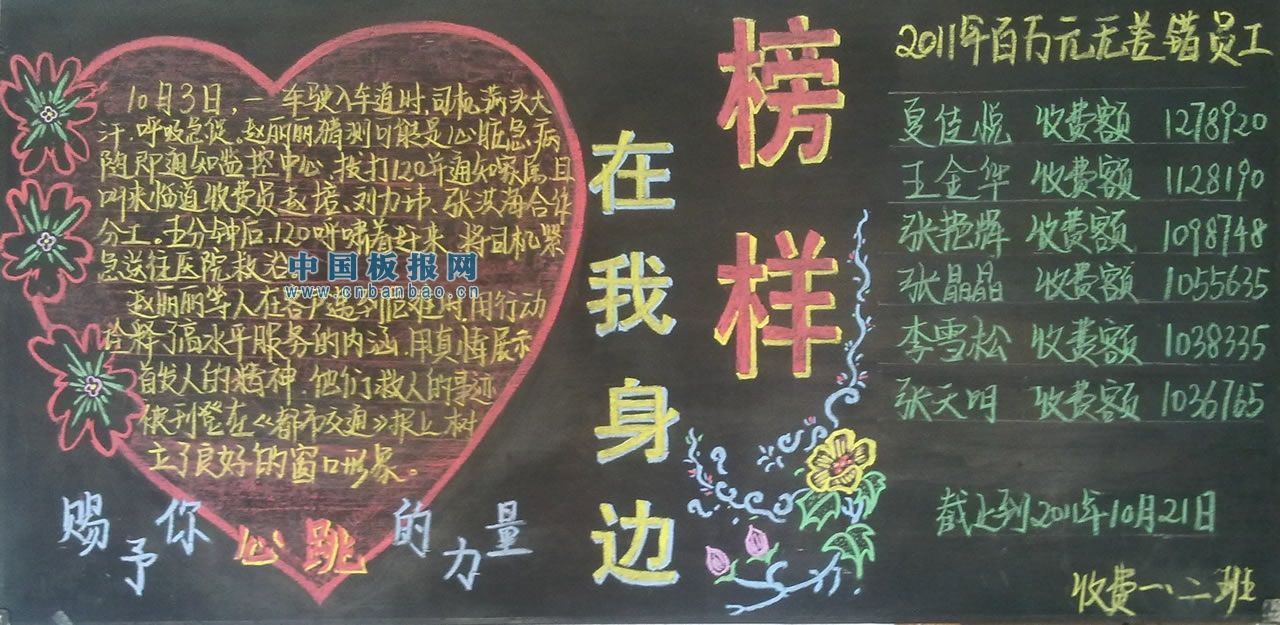 10月3日，一车驶入车道时，司机满头大
汗，呼吸急促。赵丽丽猜测可能是心脏急病
随即通知监控中心，拨打120并通知家属且
叫来临道收费员赵培、刘力玮、张洪海合作
分工。五分钟后，120呼啸着赶来，将司机紧
急送往医院救治
中国板报网
www.cnbanbao.cn
赵丽丽等人在客户遇到危难时，用行动
诠释了高水平服务的内涵，用真情展示
首发人的精神。他们救人的事迹
便刊登在《都市交通》报上，树
立了良好的窗口形象。
赐予你心跳的力量
榜样
在我身边
2011年百万元无差错员工
夏佳悦 收费额 1278920
王金华 收费额 1128190
张艳辉 收费额 1098748
张晶晶 收费额 1055635
李雪松 收费额 1038335
张天明 收费额 1036765
截止到2011年10月21日
收费一、二班